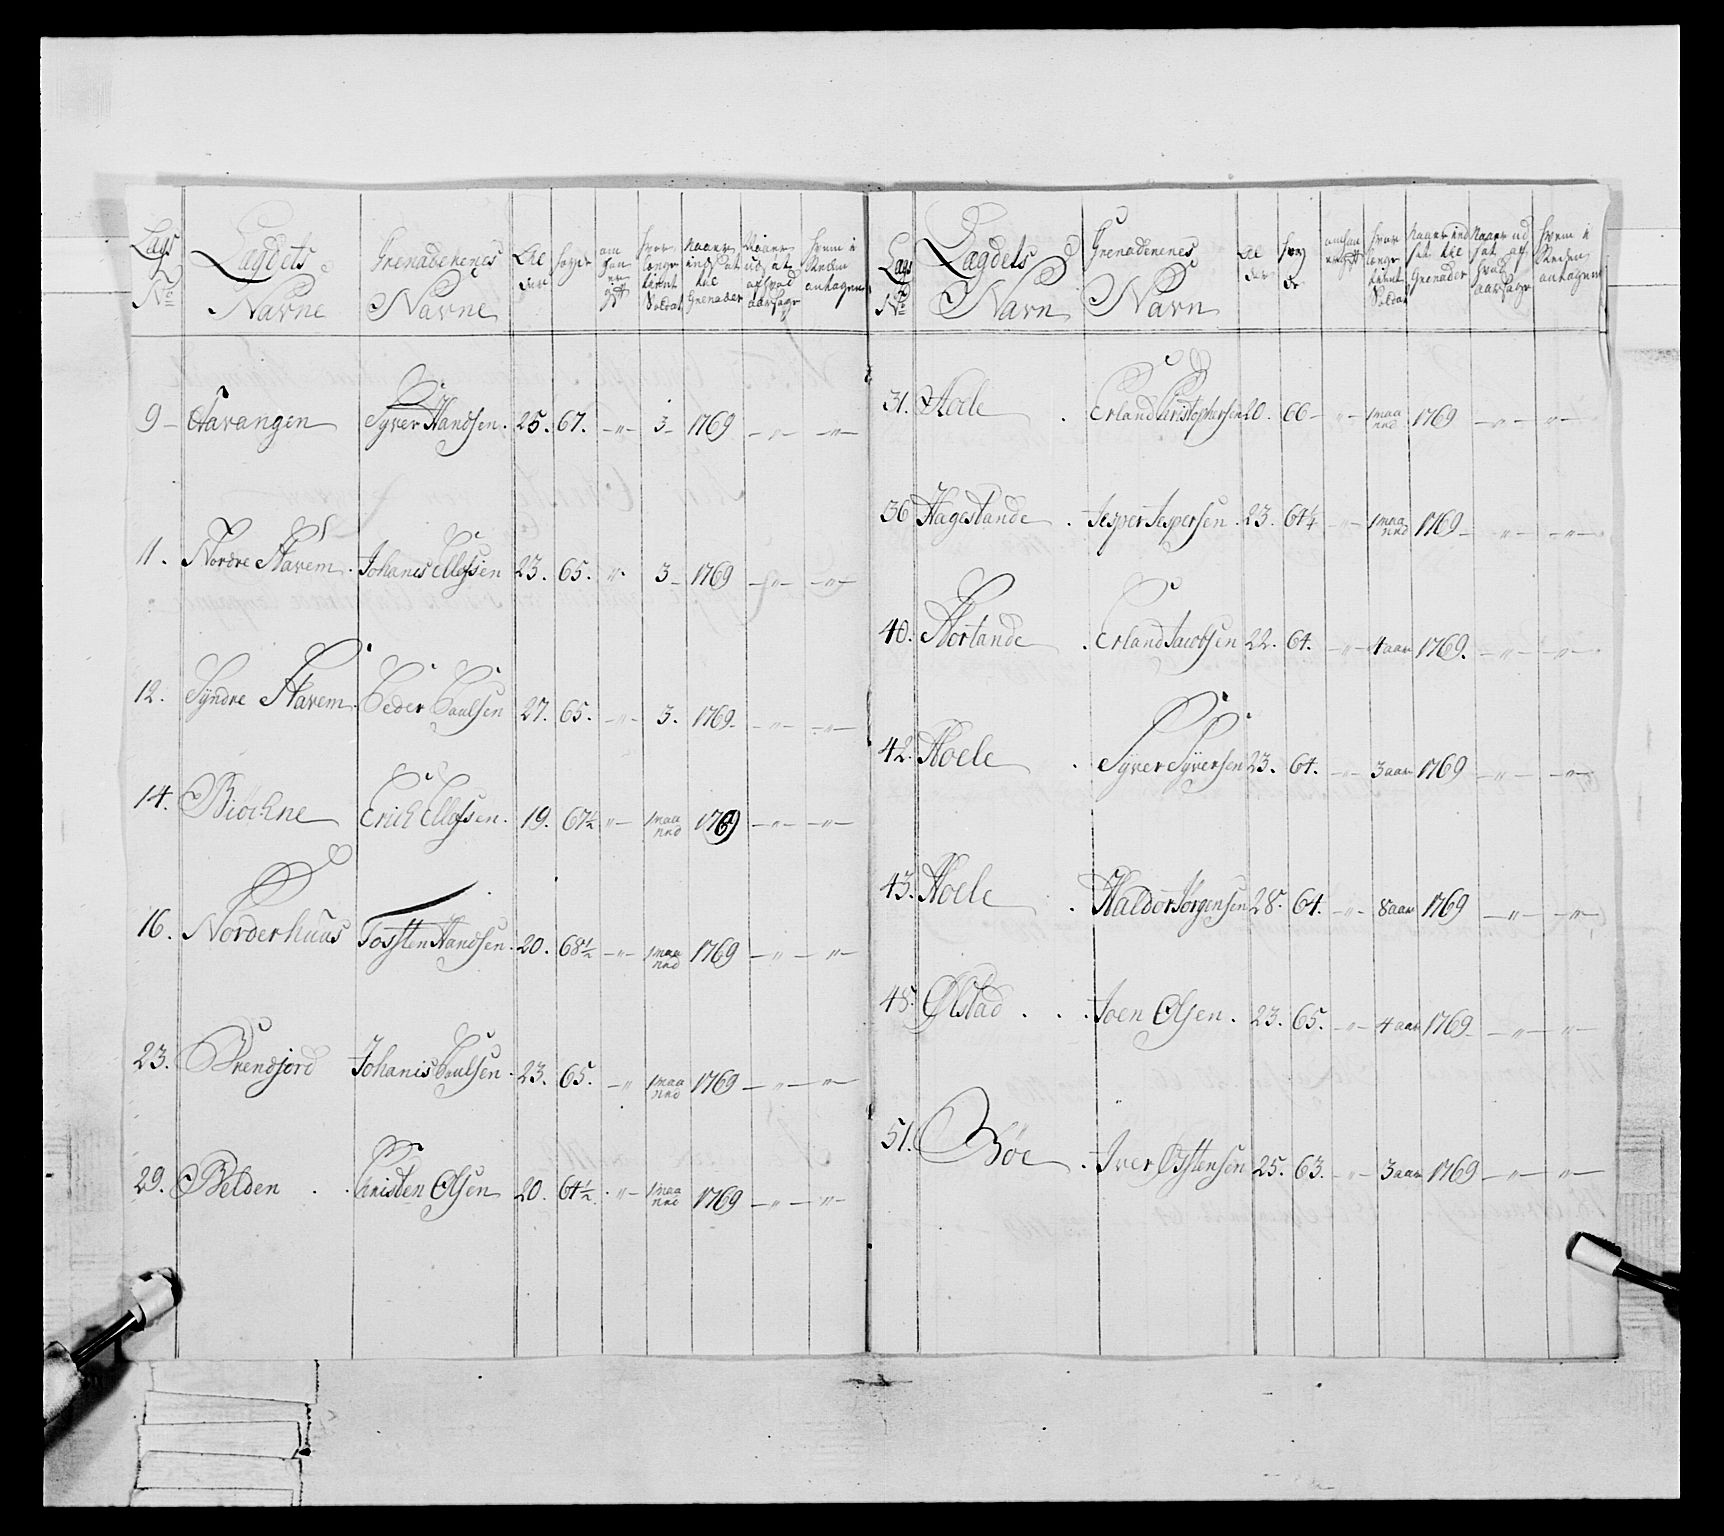 Lags No Lagdets Navne Grenaderenes Navne Al der høyde om han er gift hvor lenge tient Soldat Naaer indsat til Grenader Naaer ud sat af hvad aarsage hvem i Steden antagen
9 Havangen Syver Handsen. 25. 67. -"- 3- 1769 -"- -"-
11. Nordre Harem. Johanes Ellefsen 23. 65. "- 3- 1769 -"- -"-
12. Syndre Harem. Peder Poulsen 27. 65. -"- 3. 1769- -"- -"-
14. Biöckne Erich Ellefsen. 19. 67½ "- 1 maa nnd 1769 -"- -"-
16. Norderhuus Tosten Handsen. 20. 68½ -"- 1 maa nnd 1769 -"- -"-
23. Brendjord Johanis Poulsen. 23. 65. -" 1 maa nnd 1769 -"- -"-
29. Belden . . Christen Olsen 20. 64½ . -"- 1 maa nnd 1769 -"- -"-
Lags No Lagdets Navn Grenaderenes Navn Al der høy de om han er gift hvor lenge tient Soldat Naaer ind sat til Grenader Naaer ud sat af hvad aarsage hvem i Steden antagen
31. Hoele . Erland Christophersen 20. 66- -"- 1 maa nnd 1769 -"- "-
36 Hagestande . Jesper Jespersen. 23. 64¼ -"- 1 maa nnd 1769- -"- -"-
40. . Erland Jacobsen 22. 64. -"- 4 aar 1769. -"- -"-
42. Hoele . Syver Syversen 23. 64. -"- 3 aar 1769 -"- -"-
43. Hoele . Haldor Jörgensen 28. 64. -"- 8 aar 1769 -"- -"-
48. Ølstad . . . Joen Olsen. 23. 65. -"- 4 aar 1769 -"- -"-
51. Bøe . Iver Ostensen 25. 63. -"- 3 aar 1769 -"- -"-